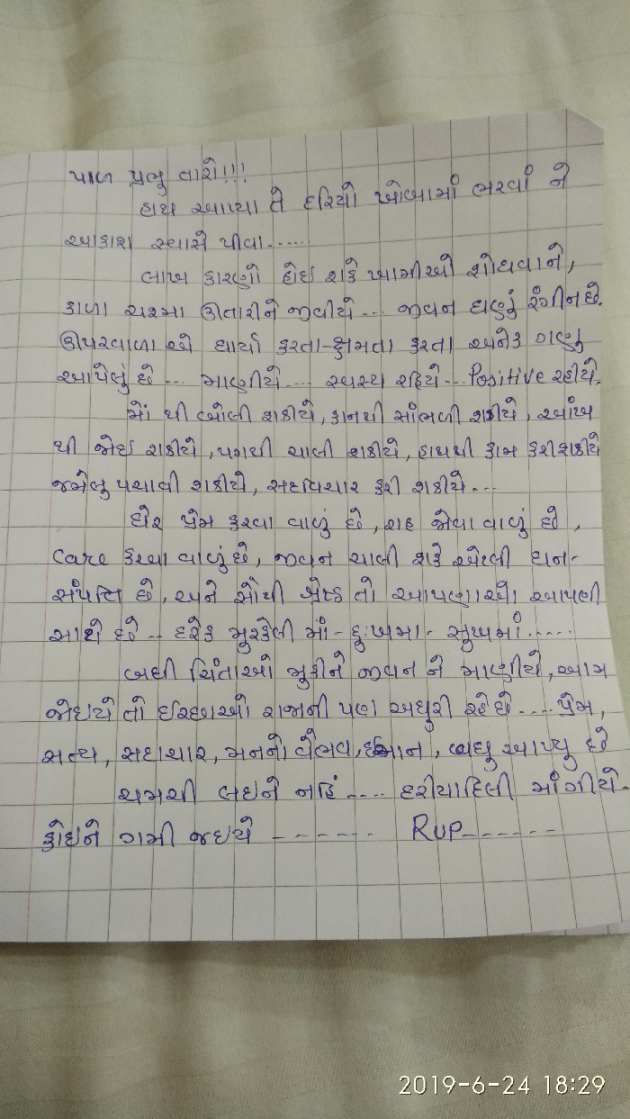 પાળ પ્રભુ તારો!!!
હાથ આપ્યા તે દરિયો ખોબામાં ભરવાં ને
આકાશ શ્વાસે પીવા.....
લાખ કારણો હોઇ શકે ખામીઓ શોધવાને,
કાળા ચશ્મા ઊતારીને જીવીયે... જીવન ઘણું રંગીન છે.
ઊપરવાળા એ ધાર્યા કરતા-ક્ષમતા કરતા અનેક ગણું
આપેલું છે... માણીયે... સ્વસ્થ રહિયે... Positive રહીયે.
મોં થી બોલી શકીયે, કાનથી સાંભળી શકીયે, આંખ
થી જોઇ શકીયે, પગથી ચાલી શકીયે, હાથથી કામ કરી શકીયે
જમેલુ પચાવી શકીયે, સદવિચાર કરી શકીયે...
ઘેર પ્રેમ કરવા વાળું છે, રાહ જોવા વાળું છે,
care કરવા વાળું છે, જીવન ચાલી શકે એટલી ધન-
સંપત્તિ છે, અને સૌથી શ્રેષ્ઠ તો આપણા એ આપણી
સાથે છે... દરેક મુશ્કેલી માં - દુઃખમા - સુખમાં.....
બધી ચિંતાઓ મુકીને જીવન ને માણીયે, આમ
જોઇયે તો ઈચ્છાઓ રાજાની પણ અધુરી રહે છે.... પ્રેમ,
સત્ય, સદાચાર, મનનો વૈભવ, ઈમાન, બધુ આપ્યુ છે
ચમચી લઇને નહિં.... દરીયાદિલી માંગીયે.
કોઇને ગમી જઇયે ------- RUP------
2019-6-24 18:29